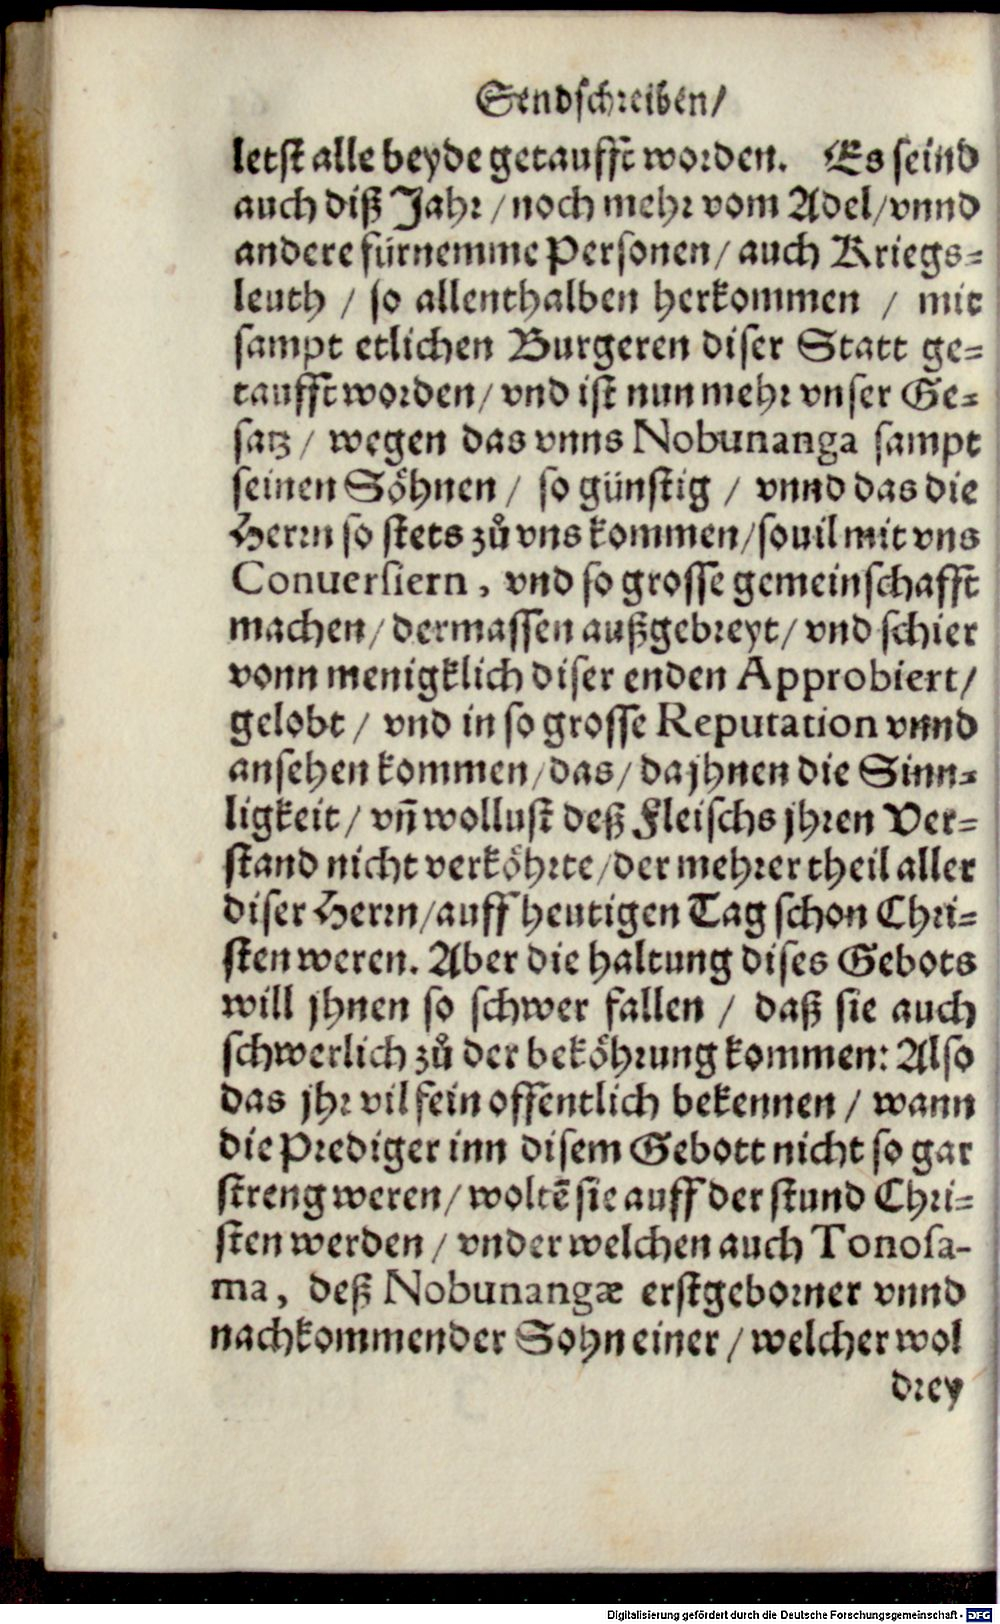 Sendschreiben/
letst alle beyde getaufft worden. Es seind
auch diß Jahr/noch mehr vom Adel/vnnd
andere fürnemme Personen/ auch Kriegs=
leuth / so allenthalben herkommen / mit
sampt etlichen Burgeren diser Statt ge=
taufft worden/ vnd ist nun mehr vnser Ge=
satz/ wegen das vnns Nobunanga sampt
seinen Söhnen / so günstig / vnnd das die
Herrn so stets zů vns kommen/souil mit vns
Conuersiern, vnd so grosse gemeinschafft
machen/ dermassen außgebreyt/ vnd schier
vonn menigklich diser enden Approbiert/
gelobt / vnd in so grosse Reputation vnnd
ansehen kommen/das/ da jhnen die Sinn=
ligkeit/ vn̄ wollust deß Fleischs jhren Ver=
stand nicht verköhrte/der mehrer theil aller
diser Herrn/auff heutigen Tag schon Chri=
sten weren. Aber die haltung dises Gebots
will jhnen so schwer fallen / daß sie auch
schwerlich zů der beköhrung kommen: Also
das jhr vil fein offentlich bekennen / wann
die Prediger inn disem Gebott nicht so gar
streng weren/ woltē sie auff der stund Chri=
sten werden/ vnder welchen auch Tonosa-
ma, deß Nobunangæ erstgeborner vnnd
nachkommender Sohn einer / welcher wol
drey
Digitalisierung gefördert durch die Deutsche Forschungsgemeinschaft - DFG